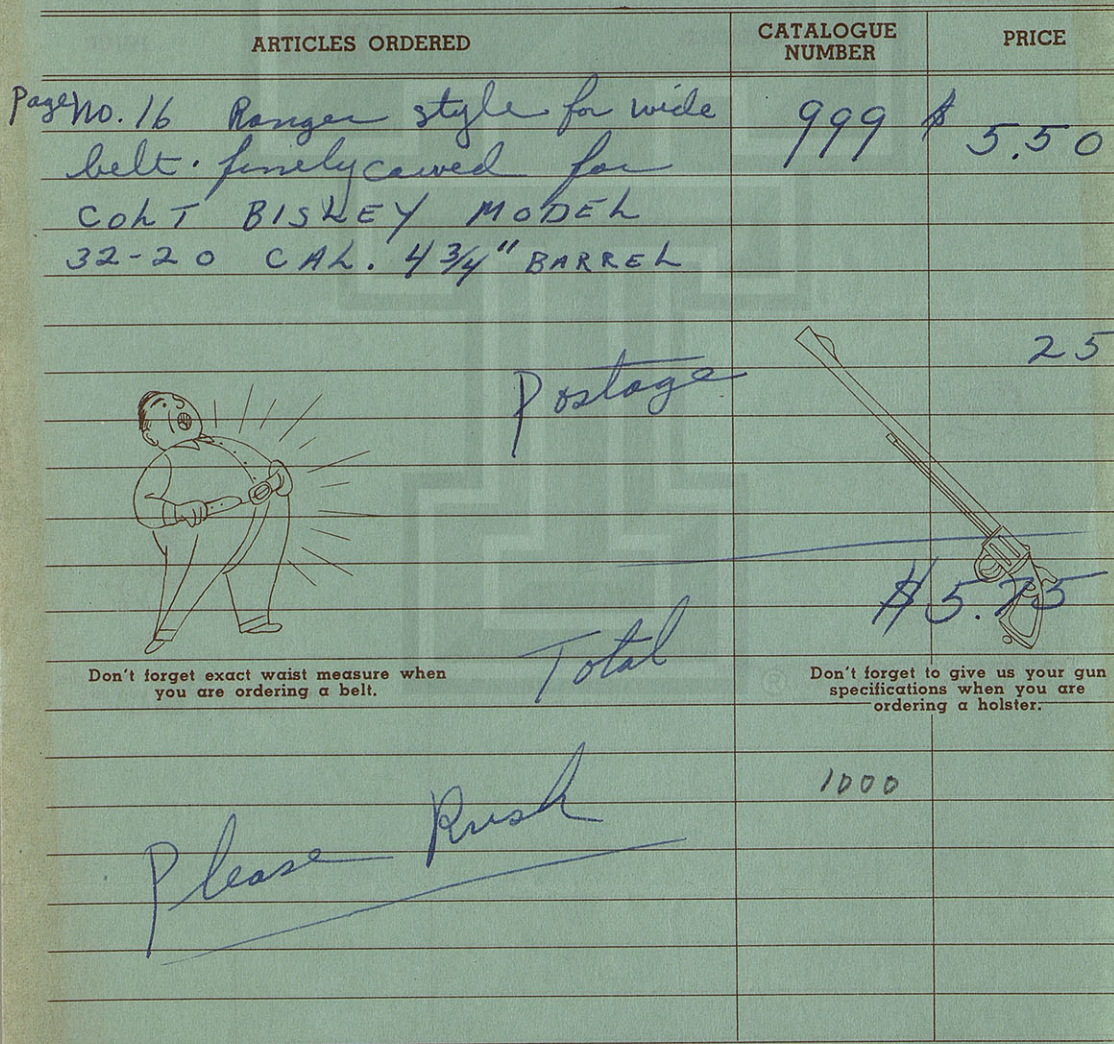 ARTICLES ORDERED CATALOGUE NUMBER PRICE
Page No. 16 Ranger style for wide 999 $ 5.50
belt. finely carved for
COLT BISLEY MODEL
32-20 CAL. 4 3/4" BARREL
Postage 25
Total $5.75
Don't forget exact waist measure when
you are ordering a belt.
Don't forget to give us your gun
specifications when you are
ordering a holster.
1000
Please Rush
®